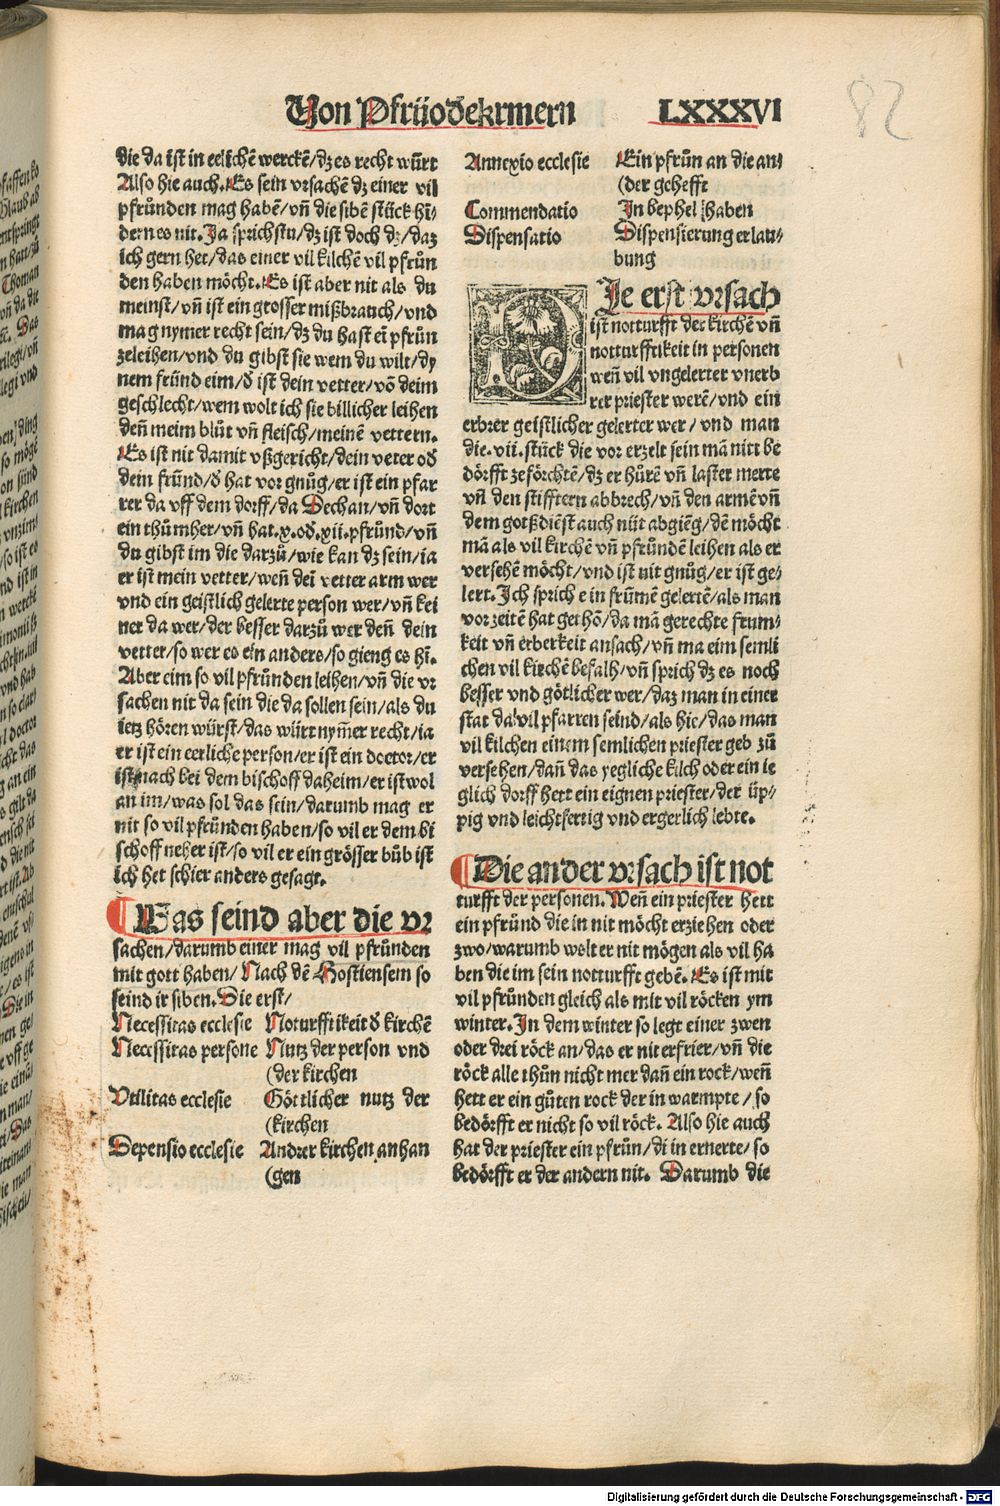 Von Pfrüodekrmern LXXXVI
82
die da ist in eelichē werckē/dz es recht wŭrt
Also hie auch. Es sein vrsachē dz einer vil
pfrůnden mag habē/vn̄ die sibē stück hī-
dern es nit. Ja sprichstu/dz ist doch dz/daz
ich gern het/das einer vil kilchē vil pfrůn
den haben möcht. Es ist aber nit als du
meinst/vn̄ ist ein grosser mißbrauch/vnd
mag nymer recht sein/dz du hast eī pfrůn
zeleihen/vnd du gibst sie wem du wilt/dy
nem fründ eim/d ist dein vetter/vō deim
geschlecht/wem wolt ich sie billicher leihen
den̄ meim blůt vn̄ fleisch/meinē vettern.
Es ist nit damit vßgericht/dein veter od
dem fründ/d hat vor gnůg/er ist ein pfar
rer da vff dem dorff/da Dechan/vn̄ dort
ein thůmher/vn̄ hat.x.od.xii.pfründ/vn̄
du gibst im die darzů/wie kan dz sein/ia
er ist mein vetter/wen̄ dei vetter arm wer
vnd ein geistlich gelerte person wer/vn̄ kei
ner da wer/der besser darzů wer den̄ dein
vetter/so wer es ein anders/so gieng es hī.
Aber eim so vil pfründen leihen/vn̄ die vr
sachen nit da sein die da sollen sein/als du
ietz hören würst/das würt nym̄er recht/ia
er ist ein eerliche person/er ist ein doctor/er
ist nach bei dem bischoff daheim/er ist wol
an im/was sol das sein/darumb mag er
nit so vil pfründen haben/so vil er dem bi
schoff neher ist/so vil er ein grösser bůb ist
ich het schier anders gesagt.
Was seind aber die vr
sachen/darumb einer mag vil pfründen
mit gott haben/Nach dē Hostiensem so
seind ir siben. Die erst/
Necessitas ecclesie Noturfftikeit d kirchē
Necessitas persone Nutz der person vnd
(der kirchen
Vtilitas ecclesie Göttlicher nutz der
(kirchen
Depensio ecclesie Andrer kirchen anhan
(gen
Annexio ecclesie Ein pfrůn an die an-
(der gehefft
Commendatio In bephel haben
Dispensatio Dispensierung erlau-
bung
DJe erst vrsach
ist notturfft der kirchē vn̄
notturfftikeit in personen
wen̄ vil vngelerter vnerb
rer priester werē/vnd ein
erbrer geistlicher gelerter wer/vnd man
die.vii.stück die vor erzelt sein mā nitt be
dörfft zeförchtē/dz er hůrē vn̄ laster merte
vn̄ den stifftern abbrech/vn̄ den armē vn̄
dem gotßdiēst auch nüt abgiēg/dē möcht
mā als vil kirchē vn̄ pfründē leihen als er
versehē möcht/vnd ist nit gnůg/er ist ge-
lert. Ich sprich ein frümē gelertē/als man
vor zeitē hat gethō/da mā gerechte frum-
keit vn̄ erberkeit ansach/vn̄ ma eim semli
chen vil kirchē befalh/vn̄ sprich dz es noch
besser vnd götlicher wer/daz man in einer
stat da vil pfarren seind/als hie/das man
vil kilchen einem semlichen priester geb zů
versehen/dan̄ das yegliche kilch oder ein ie
glich dorff hett ein eignen priester/der üp-
pig vnd leichtfertig vnd ergerlich lebte.
Die ander vrsach ist not
turfft der personen. Wen̄ ein priester hett
ein pfründ die in nit möcht erziehen oder
zwo/warumb wolt er nit mögen als vil ha
ben die im sein notturfft gebē. Es ist mit
vil pfründen gleich als mit vil röcken ym
winter. In dem winter so legt einer zwen
oder drei röck an/das er nit erfrier/vn̄ die
röck alle thůn nicht mer dan̄ ein rock/wen̄
hett er ein gůten rock der in warmpte/so
bedörfft er nicht so vil röck. Also hie auch
hat der priester ein pfrün/di in ernerte/so
bedörfft er der andern nit. Darumb die
Digitalisierung gefördert durch die Deutsche Forschungsgemeinschaft - DFG